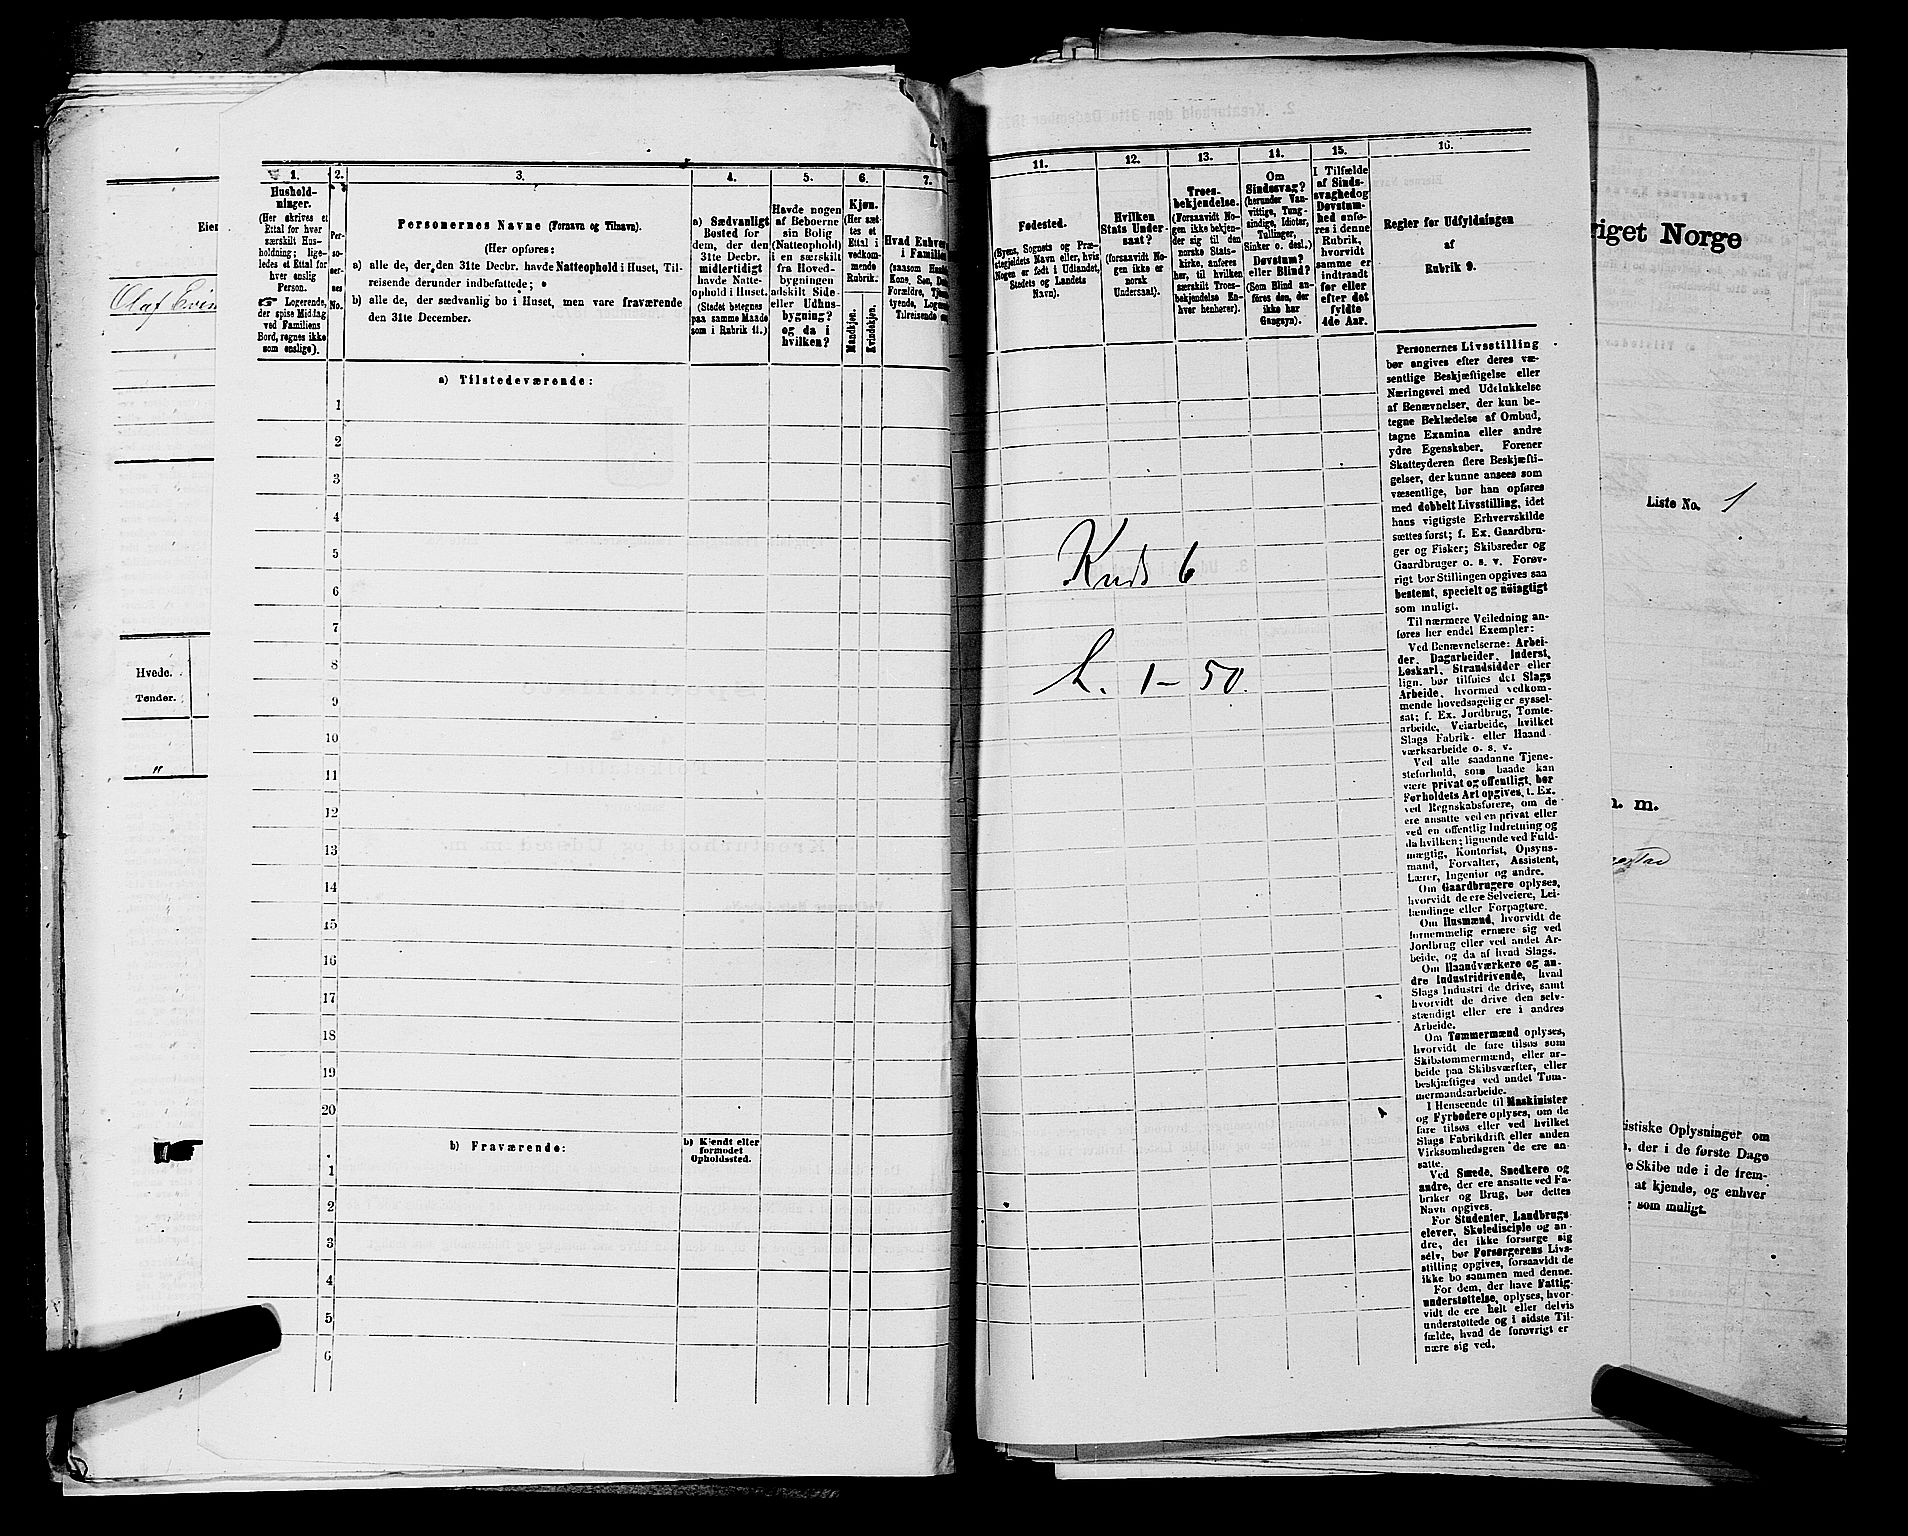 Eien
Olaf Evin
Hvede.
Tønder.
"
1.
Hushold-
ninger.
(Her skrives et
Ettal for hver
særskilt Hus-
holdning; lige-
ledes et Ettal for
hver enslig
Person.
☞ Logerende,
der spise Middag
ved Familiens
Bord, regnes ikke
som enslige).
2.
Per-
so-
ner-
nes
No.
3.
Personernes Navne (Fornavn og Tilnavn).
(Her opføres:
a) alle de, der den 31te Decbr. havde Natteophold i Huset, Til-
reisende derunder indbefattede;
b) alle de, der sædvanlig bo i Huset, men vare fraværende
den 31te December.
4.
a) Sædvanligt
Bosted for
dem, der den
31te Decbr.
midlertidigt
havde Natte-
ophold i Huset.
(Stedet betegnes
paa samme Maade
som i Rubrik 11.)
5.
Havde nogen
af Beboerne
sin Bolig
(Natteophold)
i en særskilt
fra Hoved-
bygningen
adskilt Side-
eller Udhus-
bygning?
og da i
hvilken?
6.
Kjøn.
(Her sæt-
tes et
Ettal i
vedkom-
mende
Rubrik.
Mandkjøn.
Kvindekjøn.
7.
Hvad Enhver
i Familien
(saasom Hus
Kone, Søn, Dat
Forældre, Tjen
tyende, Loger
Tilreisende o
a) Tilstedeværende:
1
2
3
4
5
6
7
8
9
10
11
12
13
14
15
16
17
18
19
20
b) Fraværende:
b) Kjendt eller
formodet
Opholdssted.
1
2
3
4
5
6
11.
Fødested.
(Byens, Sognets og Præ-
stegjeldets Navn eller, hvis
Nogen er født i Udlandet,
Stedets og Landets
Navn).
12.
Hvilken
Stats Under-
saat?
(forsaavidt No-
gen ikke er
norsk
Undersaat).
13.
Troes-
bekjendelse.
(Forsaavidt No-
gen ikke bekjen-
der sig til den
norske Stats-
kirke, anføres
her, til hvilken
særskilt Troes-
bekjendelse En-
hver henhører).
14.
Om
Sindssvag?
(herunder Van-
vittige, Tung-
sindige, Idioter,
Tullinger,
Sinker o. desl.)
Døvstum?
eller Blind?
(Som Blind an-
føres den, der
ikke har
Gangsyn).
15.
I Tilfælde
af Sinds-
svaghed og
Døvstum-
hed anfø-
res i denne
Rubrik,
hvorvidt
samme er
indtraadt
før eller
efter det
fyldte
4de Aar.
16.
Regler for Udfyldningen
af
Rubrik 9.
Personernes Livsstilling
bør angives efter deres væ-
sentlige Beskjæftigelse eller
Næringsvei med Udelukkelse
af Benævnelser, der kun be-
tegne Beklædelse af Ombud,
tagne Examina eller andre
ydre Egenskaber. Forener
Skatteyderen flere Beskjæfti-
gelser, der kunne ansees som
væsentlige, bør han opføres
med dobbelt Livsstilling, idet
hans vigtigste Erhvervskilde
sættes først; f. Ex. Gaardbru-
ger og Fisker; Skibsreder og
Gaardbruger o. s. v. Forøv-
rigt bør Stillingen opgives saa
bestemt, specielt og nøiagtigt
som muligt.
Til nærmere Veiledning an-
føres her endel Exempler:
Ved Benævnelserne: Arbei-
der, Dagarbeider, Inderst,
Løskarl, Strandsidder eller
lign. bør tilføies det Slags
Arbeide, hvormed vedkom-
mende hovedsagelig er syssel-
sat; f. Ex. Jordbrug, Tomte-
arbeide, Veiarbeide, hvilket
Slags Fabrik- eller Haand-
værksarbeide o. s. v.
Ved alle saadanne Tjene-
steforhold, som baade kan
være privat og offentligt, bør
Forholdets Art opgives, t. Ex.
ved Regnskabsførere, om de
ere ansatte ved en privat eller
ved en offentlig Indretning og
da hvilken; lignende ved Fuld-
mægtig, Kontorist, Opsyns-
mand, Forvalter, Assistent,
Lærer, Ingeniør og andre.
Om Gaardbrugere oplyses,
hvorvidt de ere Selveiere, Lei-
lændinge eller Forpagtere.
Om Husmænd, hvorvidt de
fornemmelig ernære sig ved
Jordbrug eller ved andet Ar-
beide, og da af hvad Slags.
Om Haandværkere og an-
dre Industridrivende, hvad
Slags Industri de drive, samt
hvorvidt de drive den selv-
stændigt eller ere i andres
Arbeide.
Om Tømmermænd oplyses,
hvorvidt de fare tilsøs som
Skibstømmermænd, eller ar-
beide paa Skibsværfter, eller
beskjæftiges ved andet Tøm-
mermandsarbeide.
I Henseende til Maskinister
og Fyrbødere oplyses, om de
fare tilsøs eller ved hvilket
Slags Fabrikdrift eller anden
Virksomhedsgren de ere an-
satte.
Ved Smede, Snedkere og
andre, der ere ansatte ved Fa-
briker og Brug, bør dettes
Navn opgives.
For Studenter, Landbrugs-
elever, Skoledisciple og an-
dre, der ikke forsørge sig
selv, bør Forsørgerens Livs-
stilling opgives, forsaavidt de
ikke bo sammen med denne.
For dem, der have Fattig-
understøttelse, oplyses, hvor-
vidt de ere helt eller delvis
understøttede og i sidste Til-
fælde, hvad de forøvrigt er
nære sig ved.
Kuds 6
L. 1 - 50.
riget Norge
Liste No. 1
n. m.
istiske Oplysninger om
, der i de første Dage
e Skibe ude i de frem-
at kjende, og enhver
som muligt.